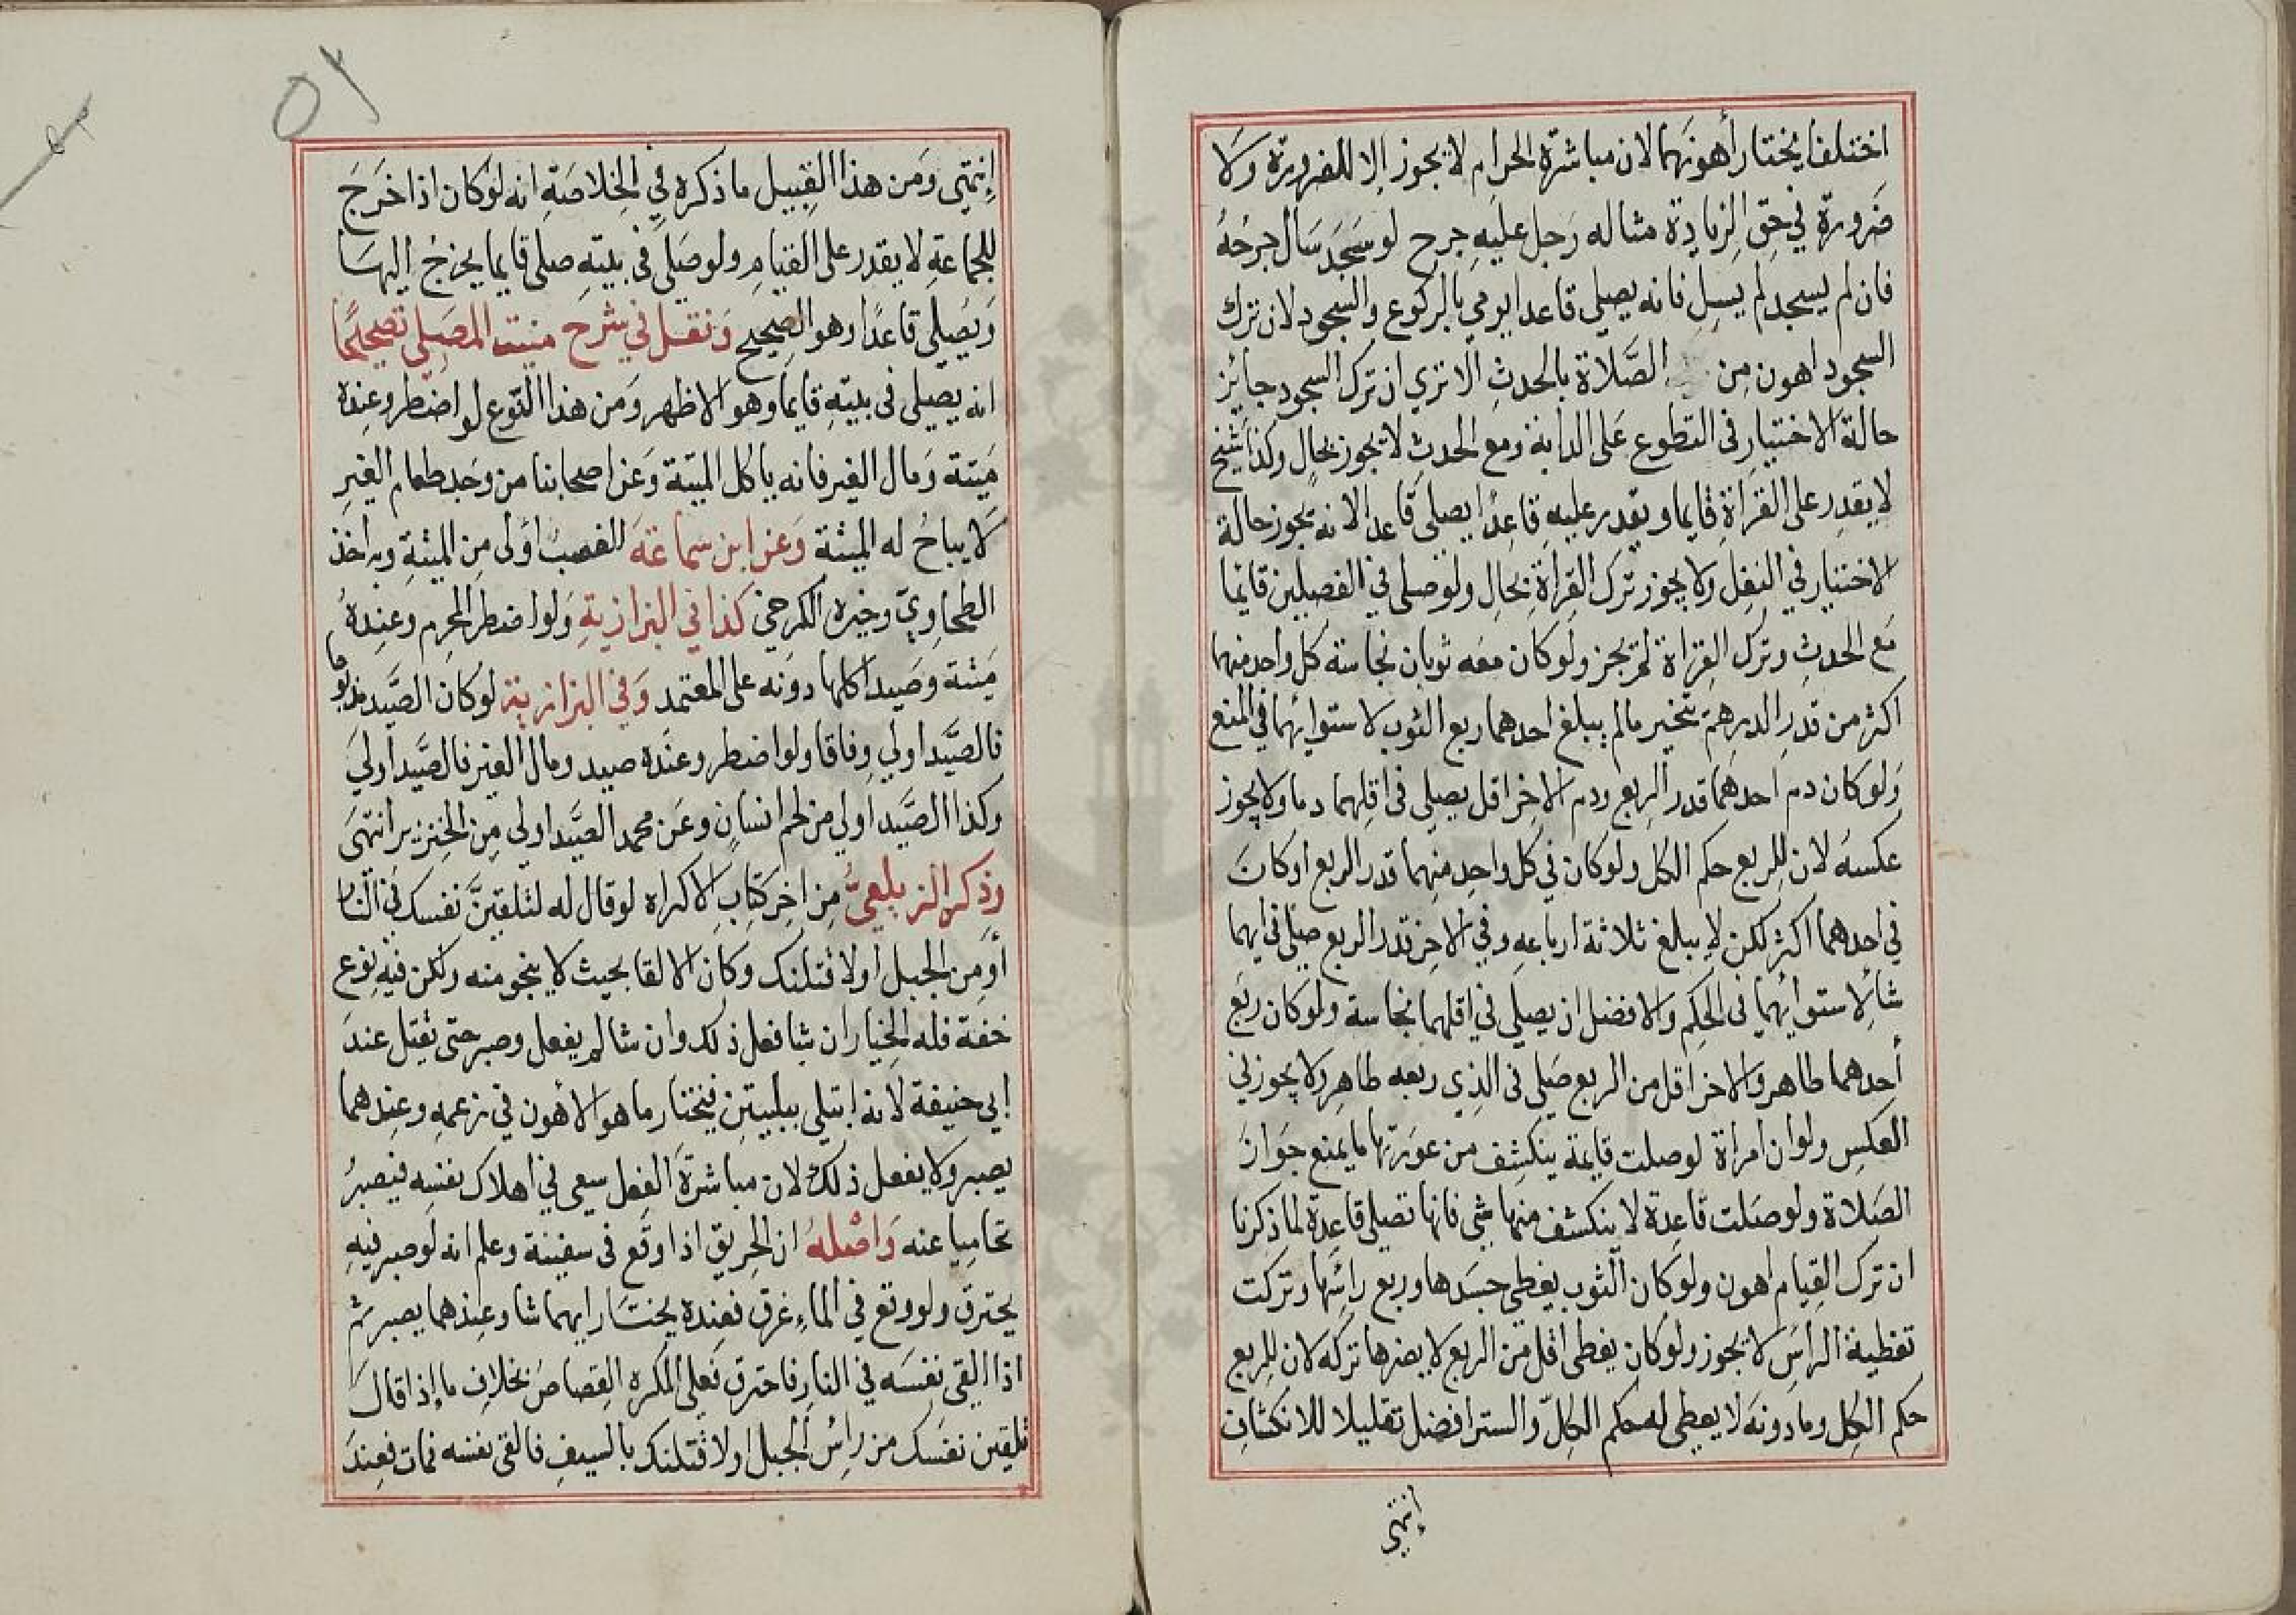 اختلفا يختار أهونهما لان مباشرة الحرام لا يجوز إلا للضرورة ولا
ضرورة في حق الزيادة مثاله رجل عليه جرح لو سجد سال جرحه
فان لم يسجد لم يسل فانه يصلي قاعدا يومي بالركوع والسجود لان ترك
السجود اهون من الصلاة بالحدث الا تري ان ترك السجود جايز
حالة الاختيار في التطوع على الدابة ومع الحدث لا يجوز بحال وكذا شيخ
لا يقدر على القراة قايما ويقدر عليه قاعدا يصلي قاعدا لانه يجوز حالة
الاختيار في النفل ولا يجوز ترك القراة بحال ولو صلى في الفصلين قائما
مع الحدث وترك القراة لم يجز ولو كان معه ثوبان نجاسة كل واحد منهما
اكثر من قدر الدرهم تخير مالم يبلغ احدهما ربع الثوب لاستوائهما في المنع
ولو كان دم احدهما قدر الربع ودم الاخر اقل يصلي في اقلهما دما ولا يجوز
عكسه لان للربع حكم الكل ولو كان في كل واحد منهما قدر الربع او كان
في احدهما اكثر لكن لا يبلغ ثلاثة ارباعه وفي الاخر قدر الربع صلى في ايهما
شا لاستوائهما في الحكم والافضل ان يصلي في اقلهما نجاسة ولو كان ربع
أحدهما طاهر والاخر اقل من الربع صلى في الذي ربعه طاهر ولا يجوز في
العكس ولو ان امراة لو صلت قايمة ينكشف من عورتها ما يمنع جواز
الصلاة ولو صلت قاعدة لا ينكشف منها شي فانها تصلي قاعدة لما ذكرنا
ان ترك القيام اهون ولو كان الثوب يغطي جسدها وربع رائسها وتركت
تغطية الراس لا يجوز ولو كان يغطي اقل من الربع لا يضرها تركه لان للربع
حكم الكل وما دونه لا يعطي له حكم الكل والستر افضل تقليلا للانكشاف
إنتهي
٥٢
إنتهي ومن هذا القبيل ما ذكره في الخلاصة انه لو كان اذا خرج
للجماعة لا يقدر على القيام ولو صلى في بيته صلى قايما يخرج اليها
ويصلي قاعدا وهو الصحيح ونقل في شرح منية المصلي تصحيحا
انه يصلي في بيته قايما وهو الاظهر ومن هذا النوع لو اضطر وعنده
ميتة ومال الغير فانه ياكل الميتة وعن اصحابنا من وجد طعام الغير
لا يباح له الميتة وعن ابن سماعة الغصب أولى من الميتة وبه اخذ
الطحاوي وخيره الكرخي كذا في البزازية ولو اضطر المحرم وعنده
ميتة وصيد اكلها دونه على المعتمد وفي البزازية لو كان الصيد مذبوحا
فالصيد اولي وفاقا ولو اضطر وعنده صيد ومال الغير فالصيد اولي
وكذا الصيد اولي من لحم انسان وعن محمد الصيد اولى من الخنزير انتهى
وذكر الزيلعي من اخر كتاب الاكراه لو قال له لتلقين نفسك في النار
أو من الجبل أو لاقتلنك وكان الالقا بحيث لا ينجو منه ولكن فيه نوع
خفة فله الخيار ان شا فعل ذلك وان شا لم يفعل وصبر حتى يقتل عند
ابي حنيفة لانه ابتلي ببليتين فيختار ما هو الأهون في زعمه وعندهما
يصبر ولا يفعل ذلك لان مباشرة الفعل سعى في اهلاك نفسه فيصبر
تحاميا عنه واصله ان الحريق اذا وقع في سفينة وعلم انه لو صبر فيه
يحترق ولو وقع في الماء غرق فعنده يختار ايهما شا وعندهما يصبر ثم
اذا القى نفسه في النار فاحترق فعلى المكره القصاص بخلاف ما إذا قال
تلقين نفسك من رائس الجبل او لاقتلنك بالسيف فالقى نفسه فمات فعند